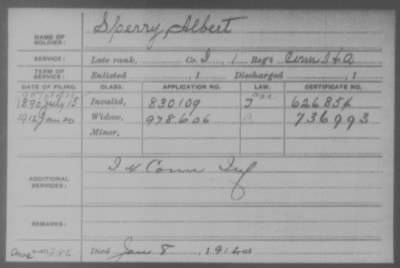 NAME OF SOLDIER: Sperry, Albert
SERVICE: Late rank, Co. I, 1 Reg't Conn H A
TERM OF SERVICE: Enlisted , 1 Discharged , 1
DATE OF FILING. CLASS. APPLICATION NO. LAW. CERTIFICATE NO.
1890 July 15 Invalid, 830109 J 626854
1912 Jan Widow, 978606 736993
Minor,
ADDITIONAL SERVICES: Conn Inf
REMARKS:
Died Jan 8, 1912, at